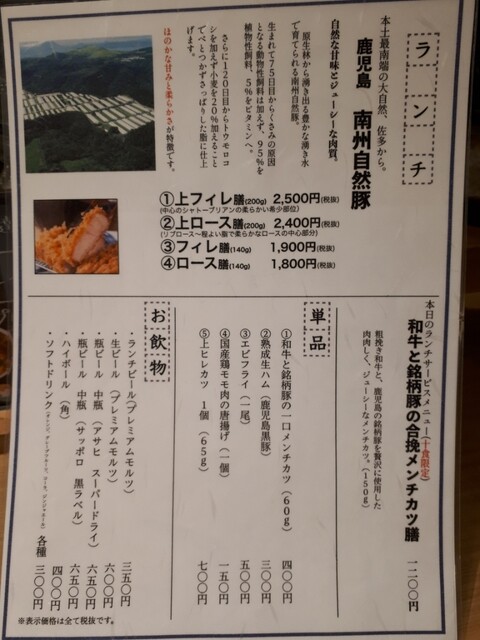 ランチ
本土最南端の大自然、佐多から。
鹿児島 南州自然豚
自然な甘味とジューシーな肉質。
原生林から湧き出る豊かな湧き水
で育てられる南州自然豚。
生まれて75日目からくさみの原因
となる動物性飼料は加えず、95%を
植物性飼料、5%をビタミンへ。
さらに120日目からトウモロコ
シを加えず小麦を20%加えること
でべとつかずさっぱりした脂に仕上
げます。
ほのかな甘みと柔らかさが特徴です。
①上フィレ膳(200g) 2,500円(税抜)
(中心のシャトーブリアンの柔らかい希少部位)
②上ロース膳(200g) 2,400円(税抜)
(リブロース〜程よい脂で柔らかなロースの中心部分)
③フィレ膳(140g) 1,900円(税抜)
④ロース膳(140g) 1,800円(税抜)
本日のランチサービスメニュー(十食限定)
和牛と銘柄豚の合挽メンチカツ膳 一二〇〇円
粗挽き和牛と、鹿児島の銘柄豚を贅沢に使用した
肉肉しく、ジューシーなメンチカツ。(150g)
単品
①和牛と銘柄豚の一口メンチカツ(60g) 四〇〇円
②熟成生ハム(鹿児島黒豚) 三〇〇円
③エビフライ(一尾) 五〇〇円
④国産鶏モモ肉の唐揚げ(一個) 一五〇円
⑤上ヒレカツ 1個(65g) 七〇〇円
お飲物
・ランチビール(プレミアムモルツ) 三五〇円
・生ビール(プレミアムモルツ) 六〇〇円
・瓶ビール 中瓶(アサヒ スーパードライ) 六五〇円
・瓶ビール 中瓶(サッポロ 黒ラベル) 六五〇円
・ハイボール(角) 四〇〇円
・ソフトドリンク 各種 三〇〇円
※表示価格は全て税抜です。